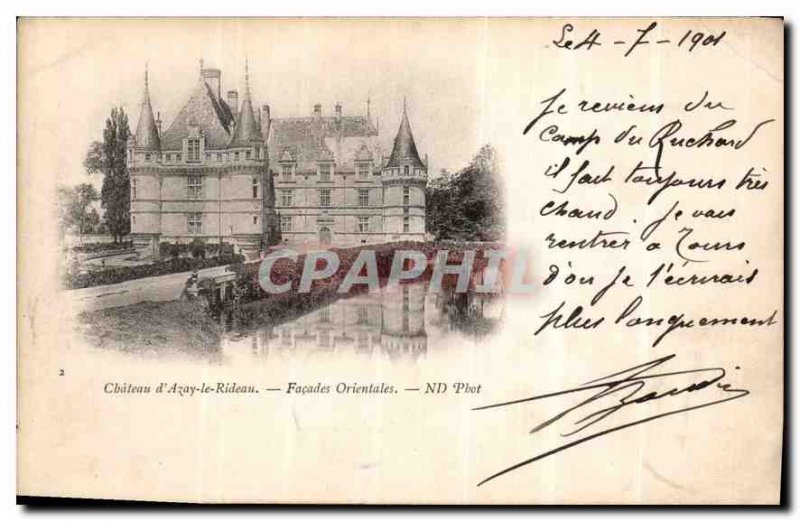 Le 4 - 7 - 1901
Je reviens du
camp du Ruchard
il fait toujours très
chaud. Je vais
rentrer à Tours
d'où je t'écrirais
plus longuement
CPARPHIL
2
Château d'Azay-le-Rideau. — Façades Orientales. — ND Phot